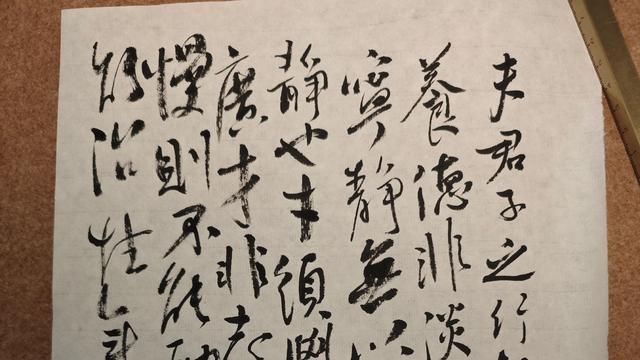 夫君子之行
養德非淡
寧靜無以
靜也才須學
廣才非志
慢則不能
能治性年